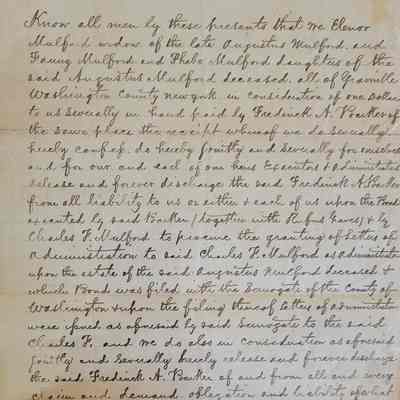 Know all men by these presents that we Elenor
Mulford widow of the late Augustus Mulford, and
Fanny Mulford and Phebe Mulford daughters of the
said Augustus Mulford deceased, all of Granville
Washington County New York in consideration of one Dollar
to us severally in hand paid by Frederick A. Barker of
the same place the receipt whereof we do severally
hereby confess, do hereby jointly and severally for ourselves
and for our and each of our heirs Executors & administrators
release and forever discharge the said Frederick A. Barker
from all liability to us or either & each of us upon the Bond
executed by said Barker (together with Rufus) & by
Charles F. Mulford to procure the granting of Letters of
Administration to said Charles F. Mulford as administrator
upon the estate of the said Augustus Mulford deceased &
which Bond was filed with the Surrogate of the County of
Washington & upon the filing thereof Letters of administration
were issued as aforesaid by said Surrogate to the said
Charles F. and we do also in consideration as aforesaid
jointly and severally hereby release and forever discharge
the said Frederick A. Barker of and from all and every
claim and demand, obligation and liability of what